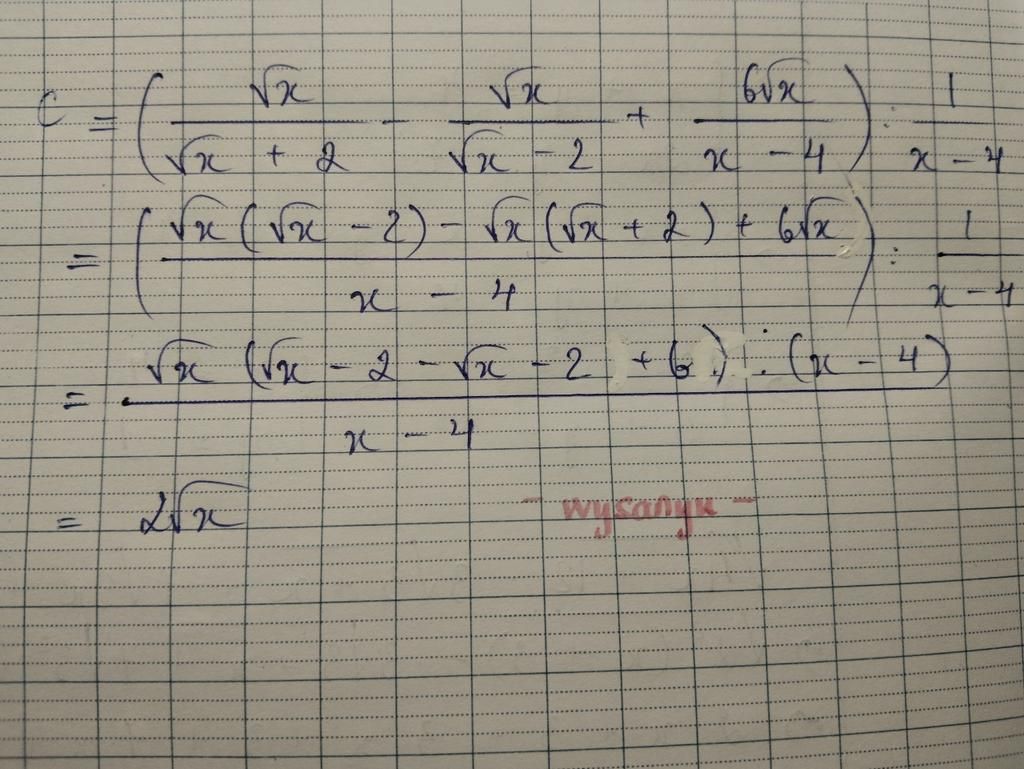 C = ( √x / (√x + 2) - √x / (√x - 2) + 6√x / (x - 4) ) : 1 / (x - 4)
= ( (√x (√x - 2) - √x (√x + 2) + 6√x) / (x - 4) ) : 1 / (x - 4)
= (√x (√x - 2 - √x - 2 + 6) : (x - 4)) / (x - 4)
= 2√x
- wysanyu -